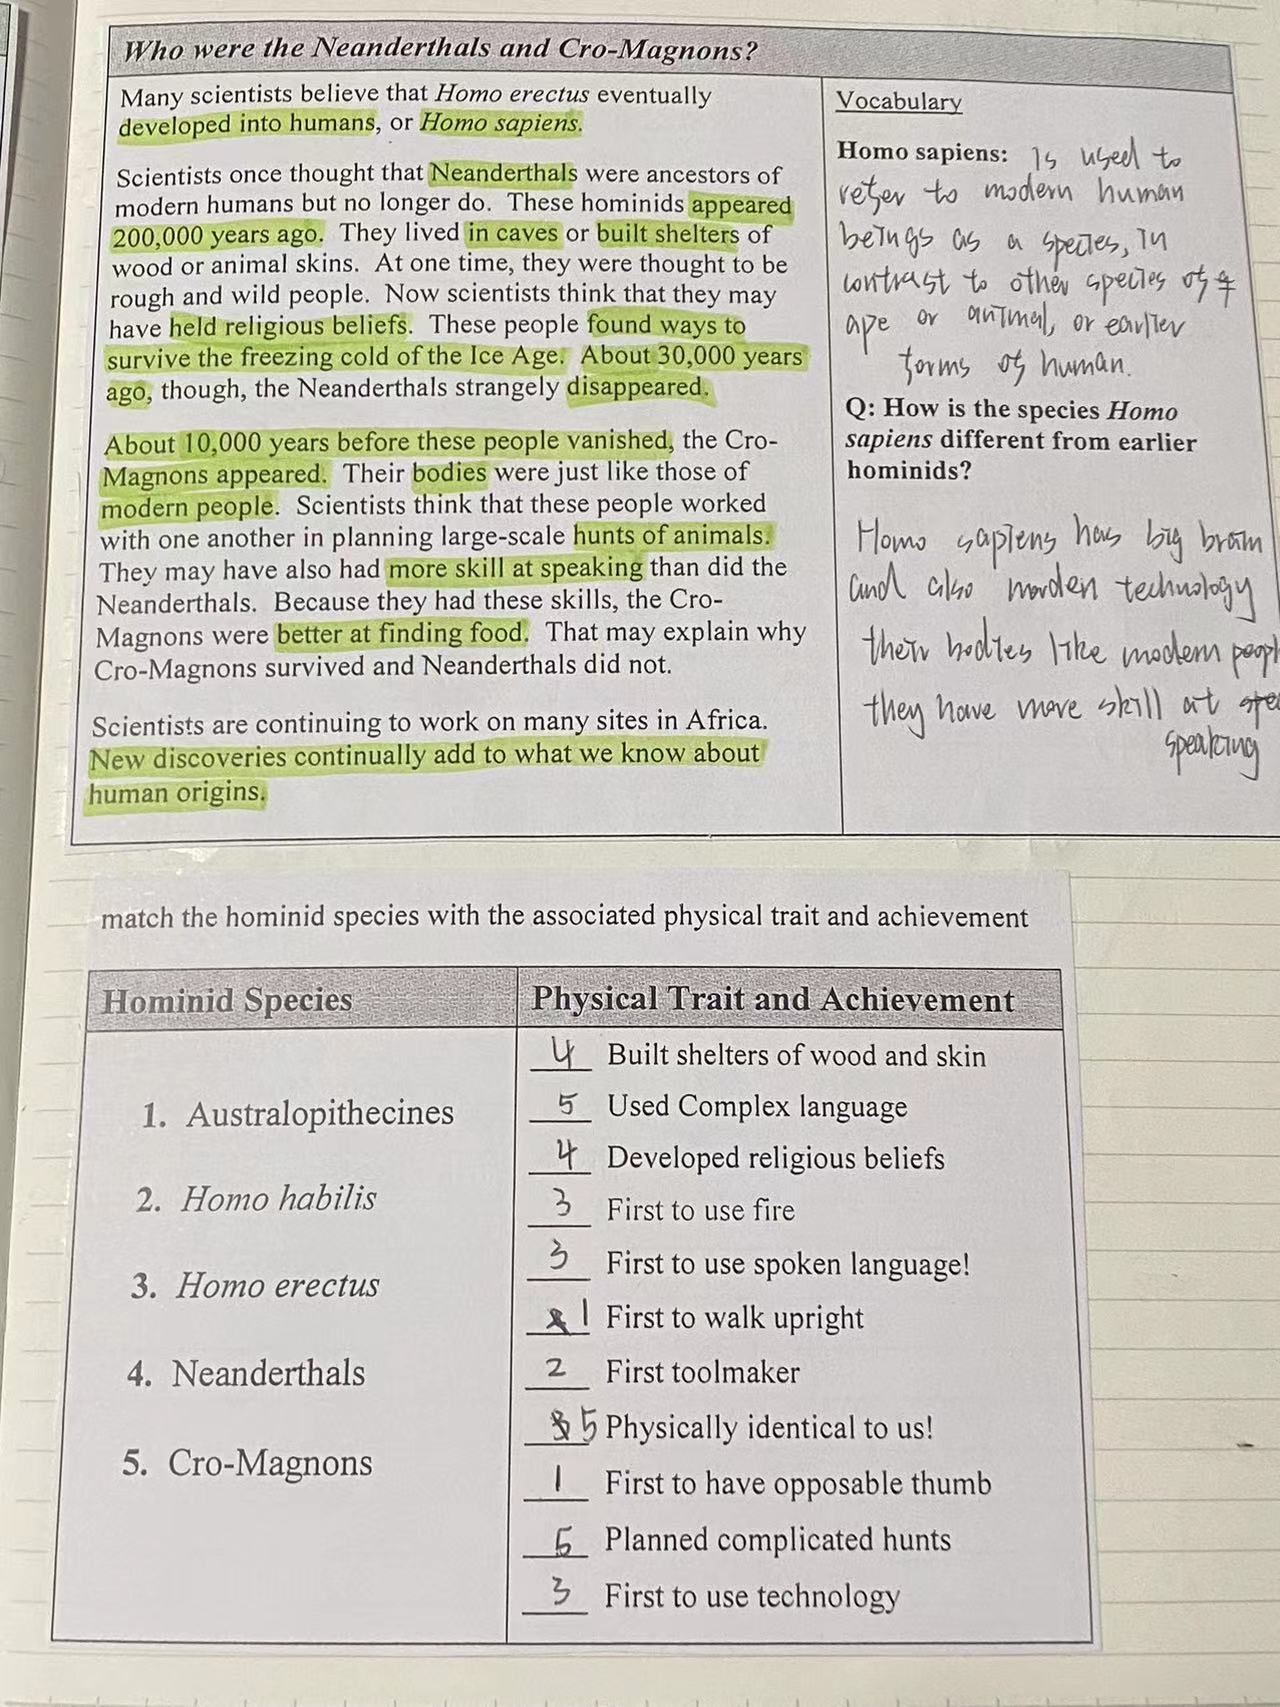 Who were the Neanderthals and Cro-Magnons?
Many scientists believe that Homo erectus eventually
developed into humans, or Homo sapiens.
Scientists once thought that Neanderthals were ancestors of
modern humans but no longer do. These hominids appeared
200,000 years ago. They lived in caves or built shelters of
wood or animal skins. At one time, they were thought to be
rough and wild people. Now scientists think that they may
have held religious beliefs. These people found ways to
survive the freezing cold of the Ice Age. About 30,000 years
ago, though, the Neanderthals strangely disappeared.
About 10,000 years before these people vanished, the Cro-
Magnons appeared. Their bodies were just like those of
modern people. Scientists think that these people worked
with one another in planning large-scale hunts of animals.
They may have also had more skill at speaking than did the
Neanderthals. Because they had these skills, the Cro-
Magnons were better at finding food. That may explain why
Cro-Magnons survived and Neanderthals did not.
Scientists are continuing to work on many sites in Africa.
New discoveries continually add to what we know about
human origins.
Vocabulary
Homo sapiens: Is used to
refer to modern human
beings as a species, in
contrast to other species of
ape or animal, or earlier
forms of human.
Q: How is the species Homo
sapiens different from earlier
hominids?
Homo sapiens has big brain
and also morden technology
their bodies like modern peopl
they have more skill at spea
speaking
match the hominid species with the associated physical trait and achievement
Hominid Species
1. Australopithecines
2. Homo habilis
3. Homo erectus
4. Neanderthals
5. Cro-Magnons
Physical Trait and Achievement
4 Built shelters of wood and skin
5 Used Complex language
4 Developed religious beliefs
3 First to use fire
3 First to use spoken language!
1 First to walk upright
2 First toolmaker
5 Physically identical to us!
1 First to have opposable thumb
5 Planned complicated hunts
3 First to use technology